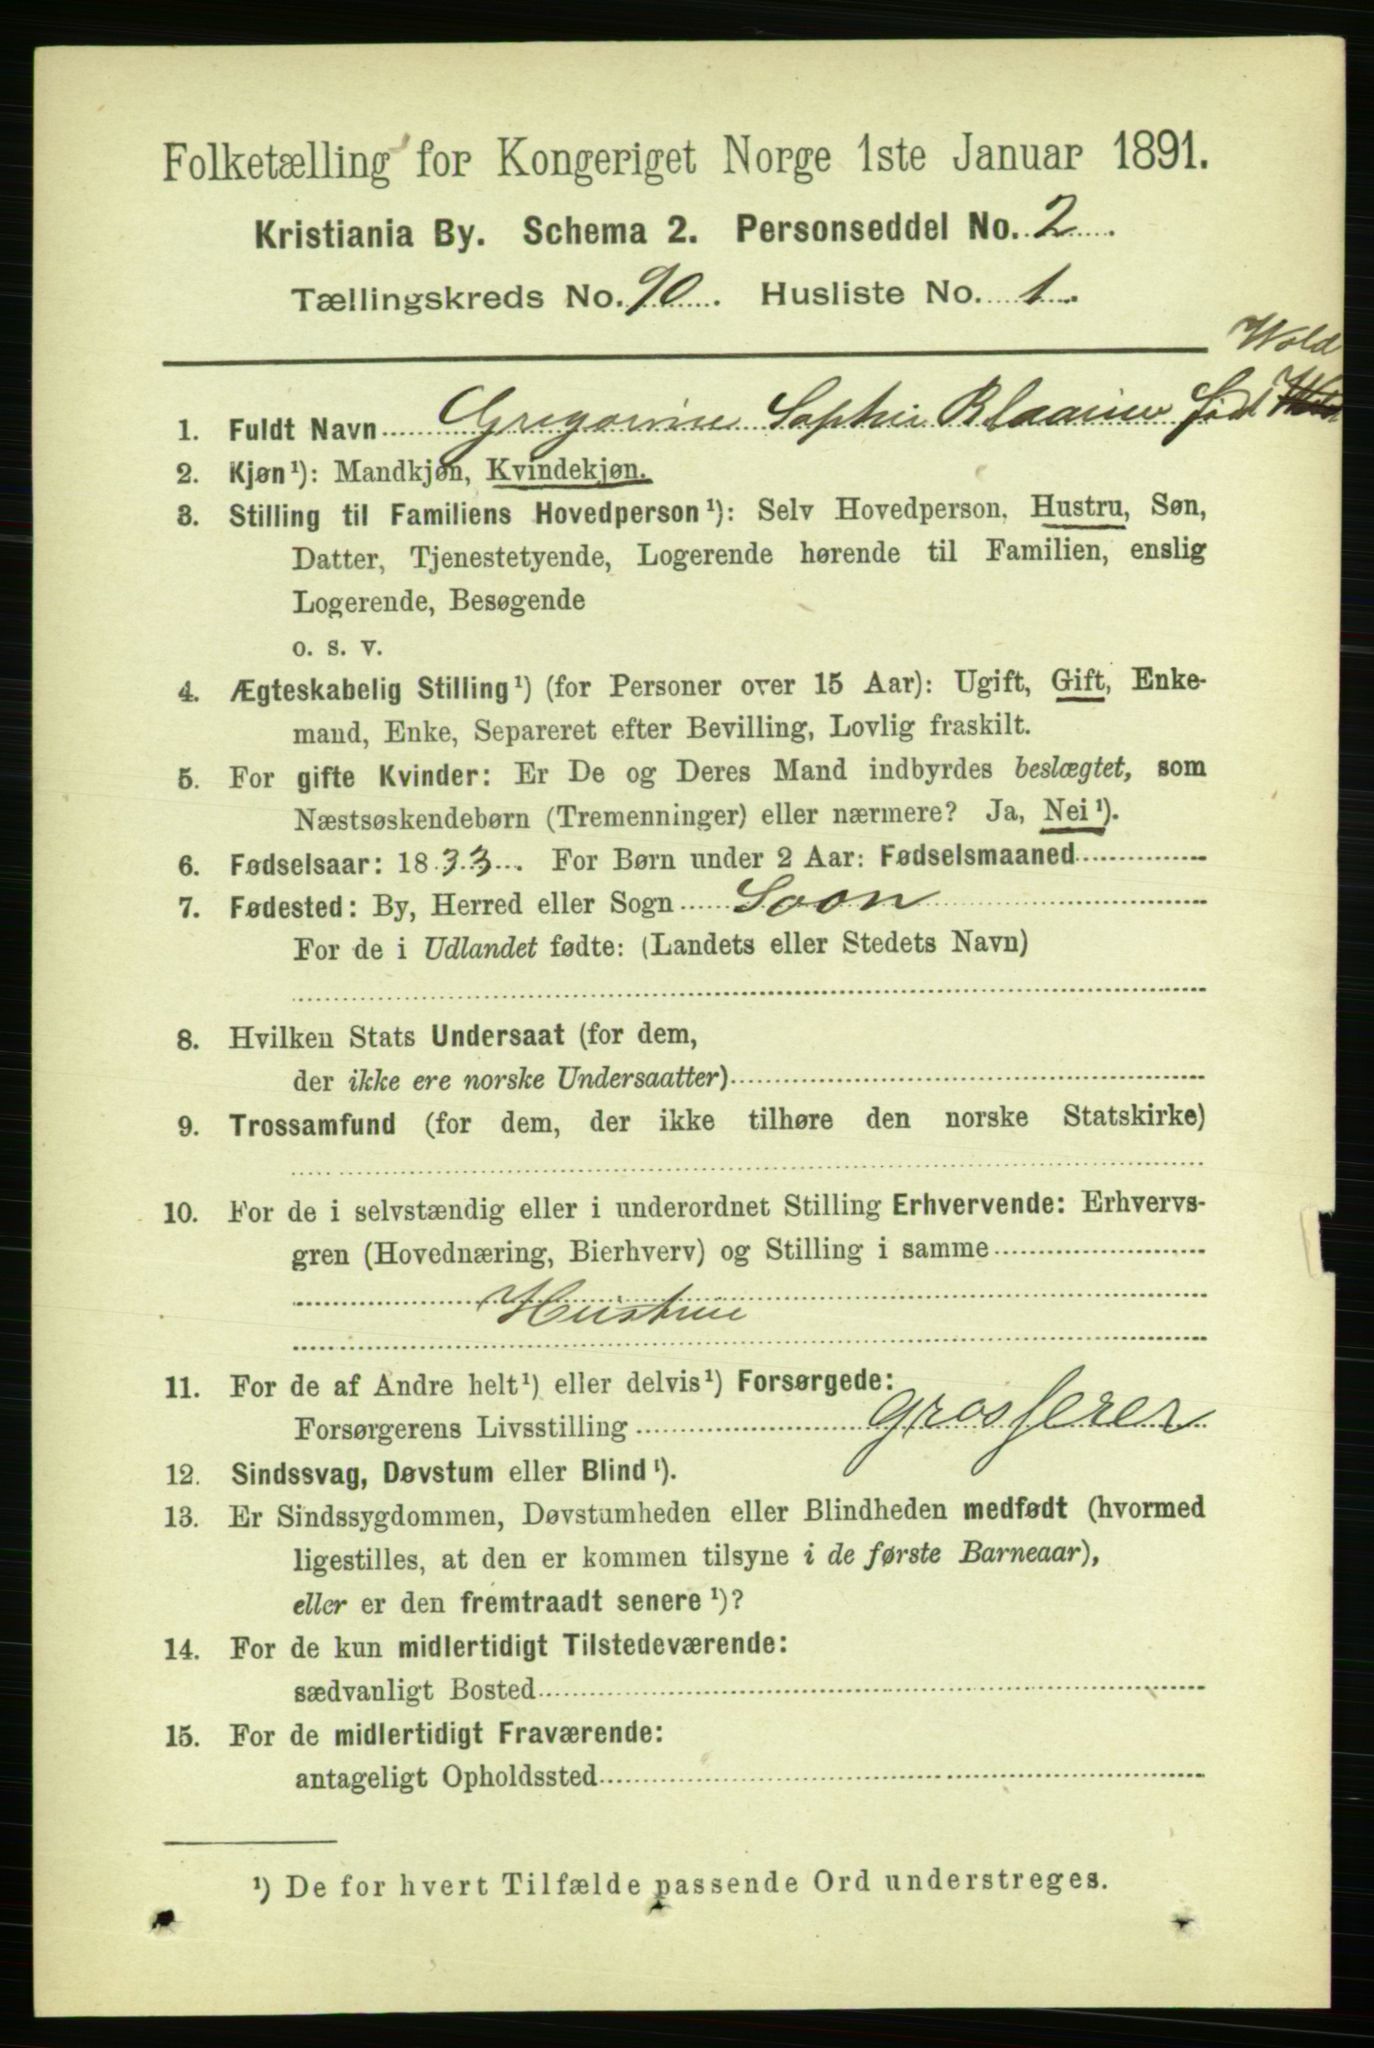 Folketælling for Kongeriget Norge 1ste Januar 1891.
Kristiania By. Schema 2. Personseddel No. 2
Tællingskreds No. 90. Husliste No. 1.
Wold
1. Fuldt Navn Gregorine Sophie Blaauw fød
2. Kjøn¹): Mandkjøn, Kvindekjøn.
3. Stilling til Familiens Hovedperson¹): Selv Hovedperson, Hustru, Søn,
Datter, Tjenestetyende, Logerende hørende til Familien, enslig
Logerende, Besøgende
o. s. v.
4. Ægteskabelig Stilling¹) (for Personer over 15 Aar): Ugift, Gift, Enke-
mand, Enke, Separeret efter Bevilling, Lovlig fraskilt.
5. For gifte Kvinder: Er De og Deres Mand indbyrdes beslægtet, som
Næstsøskendebørn (Tremenninger) eller nærmere? Ja, Nei¹).
6. Fødselsaar: 1833. For Børn under 2 Aar: Fødselsmaaned
7. Fødested: By, Herred eller Sogn Soon
For de i Udlandet fødte: (Landets eller Stedets Navn)
8. Hvilken Stats Undersaat (for dem,
der ikke ere norske Undersaatter)
9. Trossamfund (for dem, der ikke tilhøre den norske Statskirke)
10. For de i selvstændig eller i underordnet Stilling Erhvervende: Erhvervs-
gren (Hovednæring, Bierhverv) og Stilling i samme
Hustrue
11. For de af Andre helt¹) eller delvis¹) Forsørgede:
Forsørgerens Livsstilling grosserer
12. Sindssvag, Døvstum eller Blind¹).
13. Er Sindssygdommen, Døvstumheden eller Blindheden medfødt (hvormed
ligestilles, at den er kommen tilsyne i de første Barneaar),
eller er den fremtraadt senere¹)?
14. For de kun midlertidigt Tilstedeværende:
sædvanligt Bosted
15. For de midlertidigt Fraværende:
antageligt Opholdssted
¹) De for hvert Tilfælde passende Ord understreges.